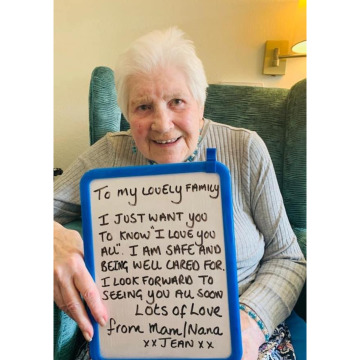 To my LOVELY FAMILY
I JUST WANT YOU
TO KNOW "I LOVE YOU
ALL". I AM SAFE AND
BEING WELL CARED FOR.
I LOOK FORWARD TO
SEEING YOU ALL SOON
LOTS OF LOVE
from Mam/Nana
xx JEAN xx